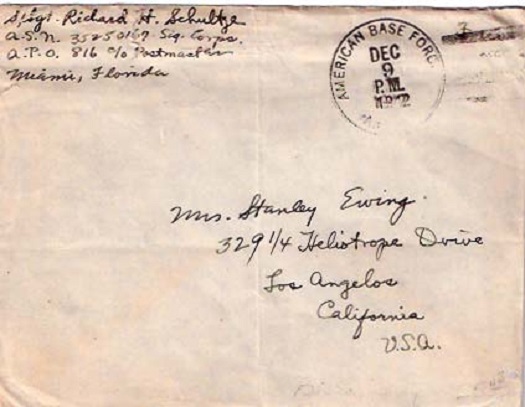 S/Sgt. Richard H. Schultze
A.S.N. 35250167 Sig. Corps.
A.P.O. 816 c/o Postmaster
Miami, Florida
AMERICAN BASE FORC
DEC
9
P.M.
1942
Mrs. Stanley Ewing.
329 1/4 Heliotrope Drive
Los Angelos
California
U.S.A.